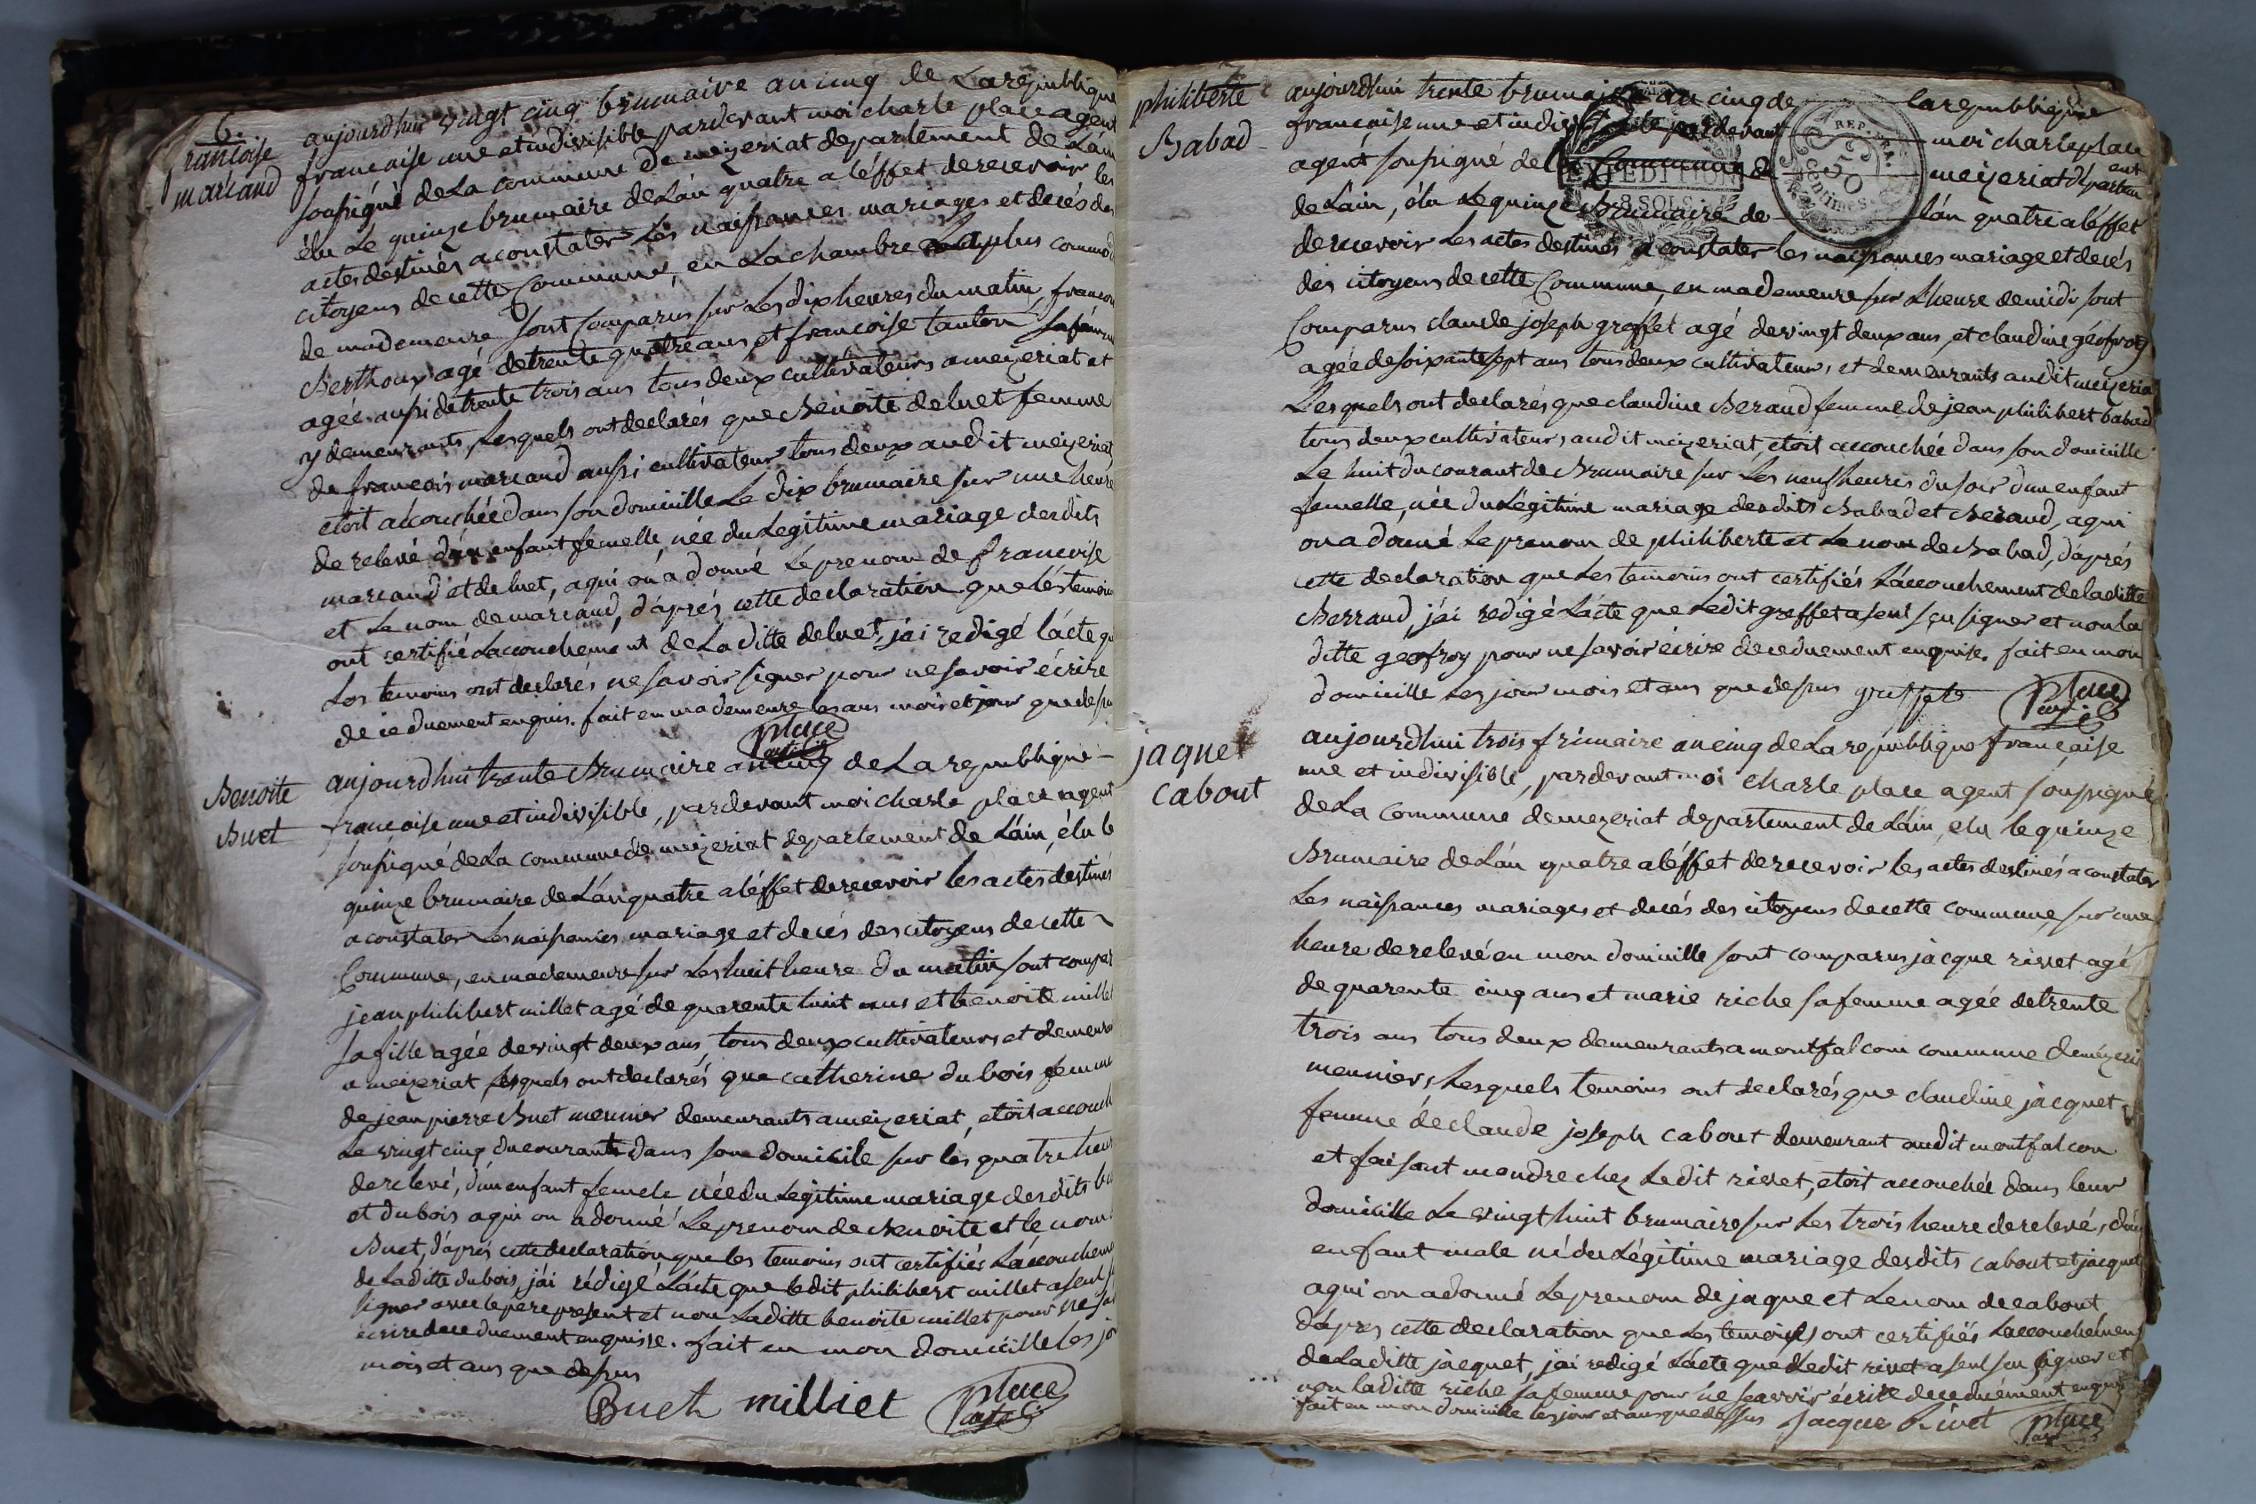 6.
francoise
marcand
aujourdhui vingt cinq brumaire an cinq de La republique
francaise une et indivisible pardevant moi charle place agent
soussigné de La commune de mezeriat departement de Láin
élu Le quinze brumaire de Lán quatre a léffet de recevoir les
actes destinés a constater Les naissances mariages et decés des
citoyens de cette Commune, en La chambre plus commod
de ma demeure sont comparus sur Les dix heures du matin, francois
Berthoux agé de trente quatre ans et francoise tanton sa femme
agée aussi de trente trois ans tous deux cultivateurs a mezeriat et
y demeurants, Lesquels ont declarés que Benoite deluet femme
de francois marcand aussi cultivateur tous deux audit mezeriat
etoit accouchée dans son domicille Le dix brumaire sur une heure
de relevé d'un enfant femelle née du Legitime mariage desdits
marcand et deluet, a qui on a donné Le prenom de francoise
et Le nom de marcand, d'aprés cette declaration que les temoins
ont certifié Laccouchement de La ditte deluet, jai redigé lácte que
Les temoins ont declarés ne savoir signer pour ne savoir écrire
de ce duement enquis. fait en ma demeure les ans mois et jour que dessus
place
Benoite
Buet
aujourdhui trente Brumaire an cinq de La republique
francoise une et indivisible, pardevant moi charle place agent
soussigné de La commune de mezeriat departement de Láin, élu le
quinze brumaire de Lán quatre a léffet de recevoir les actes destinés
a constater Les naissances mariage et decés des citoyens de cette
Commune, en ma demeure sur Les huit heure du matin sont compar
jean philibert millet agé de quarente huit ans et benoite millet
sa fille agée de vingt deux ans, tous deux cultivateurs et demeura
a mezeriat Lesquels ont declarés que catherine dubois femme
de jean pierre Buet meunier demeurants a mezeriat, etoit accouch
Le vingt cinq du courants dans son domicile sur les quatre heur
de relevé, d'un enfant femele née du Legitime mariage desdits bu
et dubois a qui on a donné Le prenom de Benoite et le nom
Buet, d'aprés cette declaration que les temoins ont certifiés Láccouchem
de La ditte dubois, jái rédigé Lácte que ledit philibert millet a seul s
signer avec le pere present et non Laditte benoite millet pour ne sa
écrire de ce duement enquise. fait en mon domicille les jo
mois et ans que dessus
Buet milliet place
7
philiberte
Babad
aujourdhui trente brumaire an cinq de la republique
francaise une et indivisible pardevant moi charle place
agent soussigné de la Commune de mezeriat departement
de Láin, élu Le quinze Brumaire de lán quatre a léffet
EXPEDITION
8 SOLS
REP. FRA.
50
centimes
de recevoir Les actes destinés a constater les naissances mariage et decés
des citoyens de cette Commune, en ma demeure sur Lheure de midi sont
Comparus claude joseph greffet agé de vingt deux ans, et claudine géofroy
agée de soixante sept ans tous deux cultivateurs, et demeurants audit mezeria
Lesquels ont declarés que claudine Beraud femme de jean philibert babad
tous deux cultivateurs audit mezeriat, etoit accouchée dans son domicille
Le huit du courant de Brumaire sur Les neuf heures du soir dun enfant
femelle, née du Légitime mariage desdits Babad et Beraud, a qui
on a donné Le prenom de philiberte et Le nom de Babad, d'aprés
cette declaration que Les temoins ont certifiés Láccouchement de laditte
Berraud, jái redigé Lácte que Ledit greffet a seul sçu signer et non la
ditte geofroy pour ne savoir écrire de ce duement enquise. fait en mon
domicille Les jour mois et ans que dessus greffet place
jaque
cabout
aujourdhui trois frimaire an cinq de La republique francaise
une et indivisible, pardevant moi charle place agent soussigné
de La Commune de mezeriat departement de Láin, elu le quinze
Brumaire de Lán quatre a léffet de recevoir les actes destinés a constater
Les naissances mariages et decés des citoyens de cette commune, sur une
heure de relevé en mon domicille sont comparus jacque rivet agé
de quarente cinq ans et marie riche sa femme agée de trente
trois ans tous deux demeurants a montfalcon commune de mezeria
meuniers, Lesquels temoins ont declarés que claudine jacquet
femme de claude joseph cabout demeurant audit montfalcon
et faisant moudre chez Ledit rivet, etoit accouchée dans leur
domicille Le vingt huit brumaire sur Les trois heure de relevé, d'un
enfant male né du Légitime mariage desdits cabout et jacquet
a qui on a donné Le prenom de jaque et Le nom de cabout
d'apres cette declaration que Les temoins ont certifiés Laccouchement
de Laditte jacquet, jai redigé Lácte que Ledit rivet a seul su signer et
non laditte riche sa femme pour ne scavoir écrire de ce duément enquis
fait en mon domicille les jour et ans que dessus Jacque Rivet place